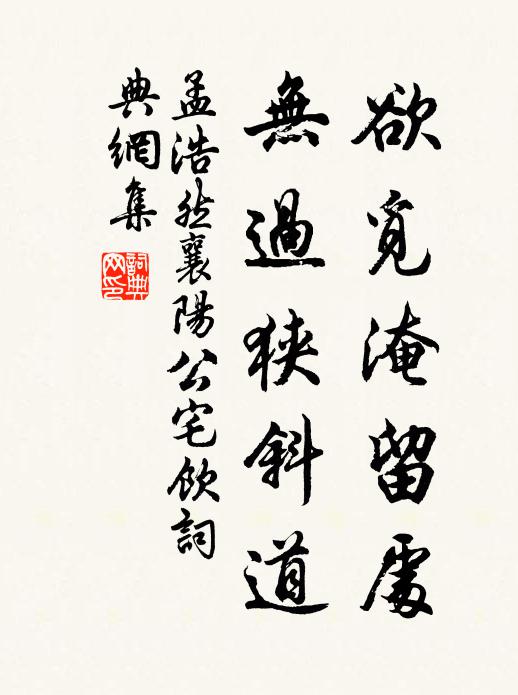 欲覓淹留處
無過狹斜道
孟浩然襄陽公宅飲詞
典網集
詞典網印